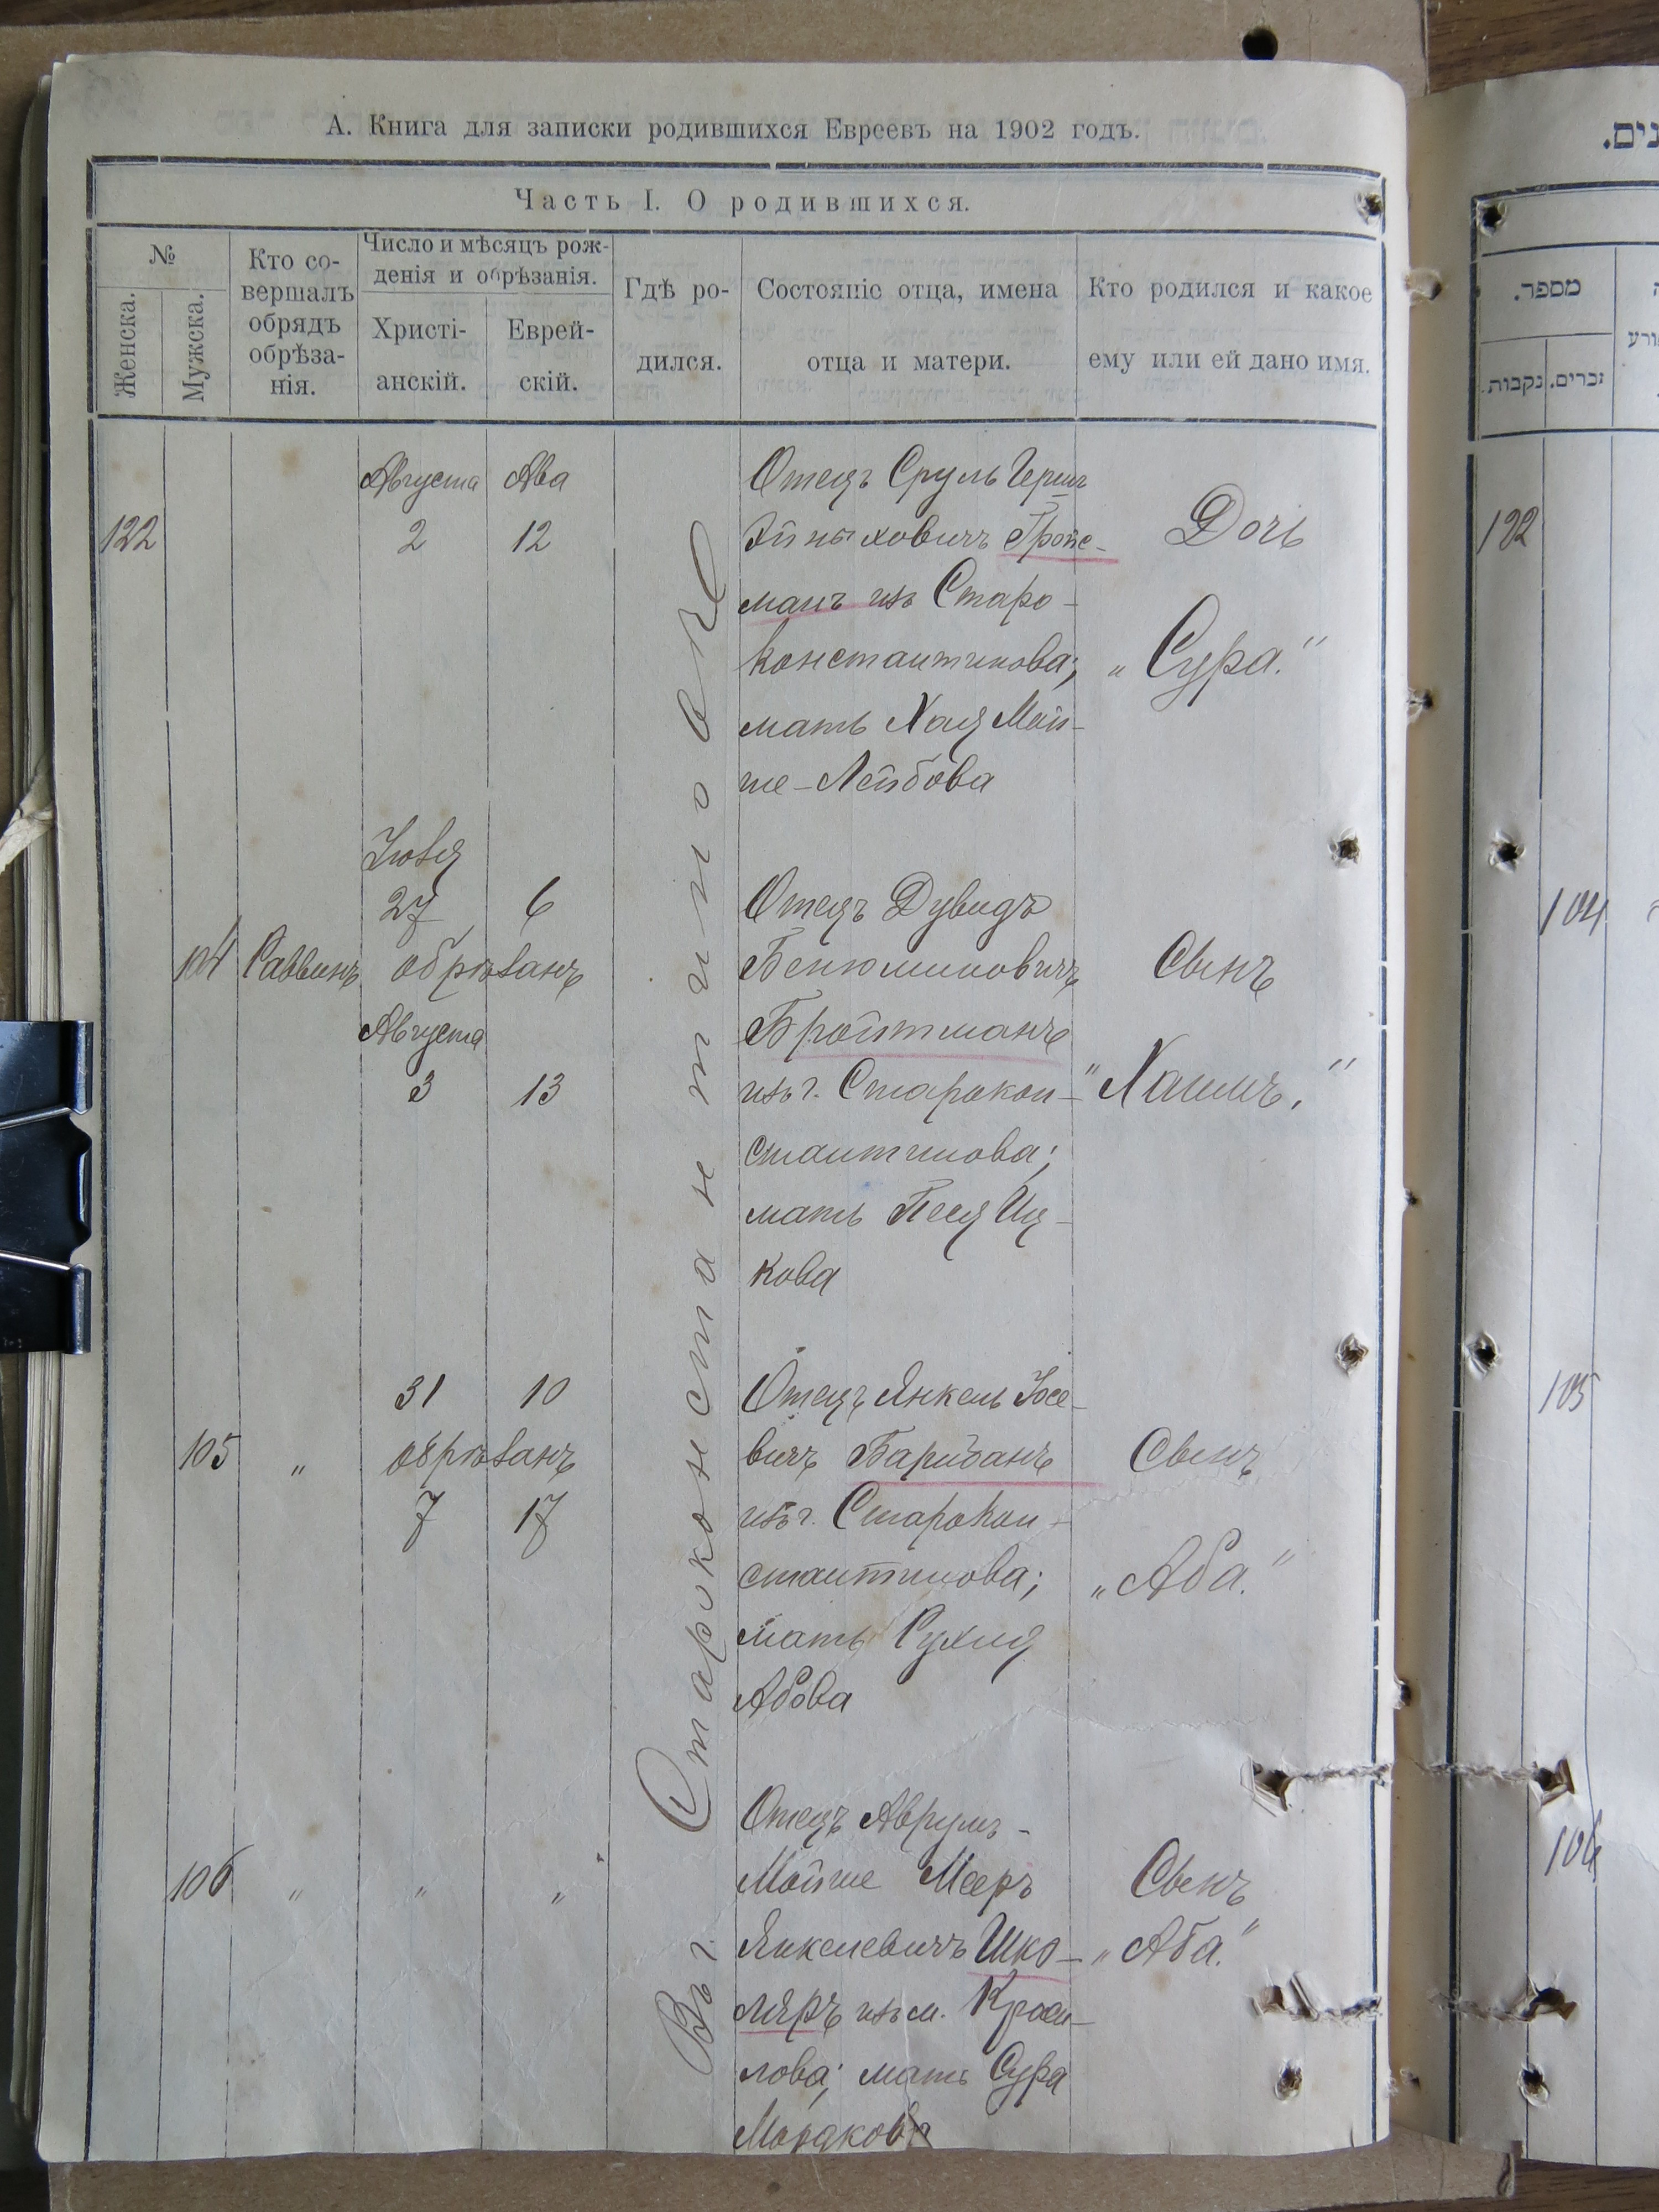 А. Книга для записки родившихся Евреевъ на 1902 годъ.
Часть I. О родившихся.
№
Женска.
Мужска.
Кто со-
вершалъ
обрядъ
обрѣза-
нія.
Число и мѣсяцъ рож-
денія и обрѣзанія.
Христі-
анскій.
Еврей-
скій.
Гдѣ ро-
дился.
Состояніе отца, имена
отца и матери.
Кто родился и какое
ему или ей дано имя.
Въ г. Староконстантиновѣ
122
Августа
2
Ава
12
Отецъ Сруль Герш
ховичъ Гройс-
манъ изъ Старо-
константинова;
мать Хая Мой-
ше-Лейбова
Дочь
„Сура."
104
Раввинъ
Іюля
27 6
обрѣзанъ
Августа
3 13
Отецъ Дувидъ
Бенюминовичъ
Бройтманъ
изъ г. Старокон-
стантинова;
мать Песя Иц-
кова
Сынъ
"Хаимъ."
105
„
31 10
обрѣзанъ
7 17
Отецъ Янкель Іосе-
вичъ Барибанъ
изъ г. Старокон-
стантинова;
мать Рухля
Абова
Сынъ
„Аба."
106
„ „ „
Отецъ Аврумъ-
Мойше Мееръ
Янкелевичъ Шко-
ляръ изъ м. Краси-
лова; мать Сура
Мордкова
Сынъ
„Аба."
נים.
מספר.
נקבות.
זכרים.
122
104
105
106